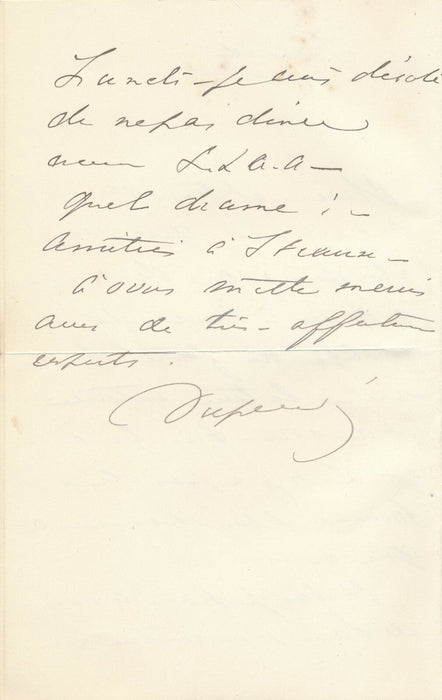 Lundi - je suis désolé
de ne pas dîner
quel drame ! -
amitiés à Straus -
à vous mille mercis
avec de très - affectueux
respects.